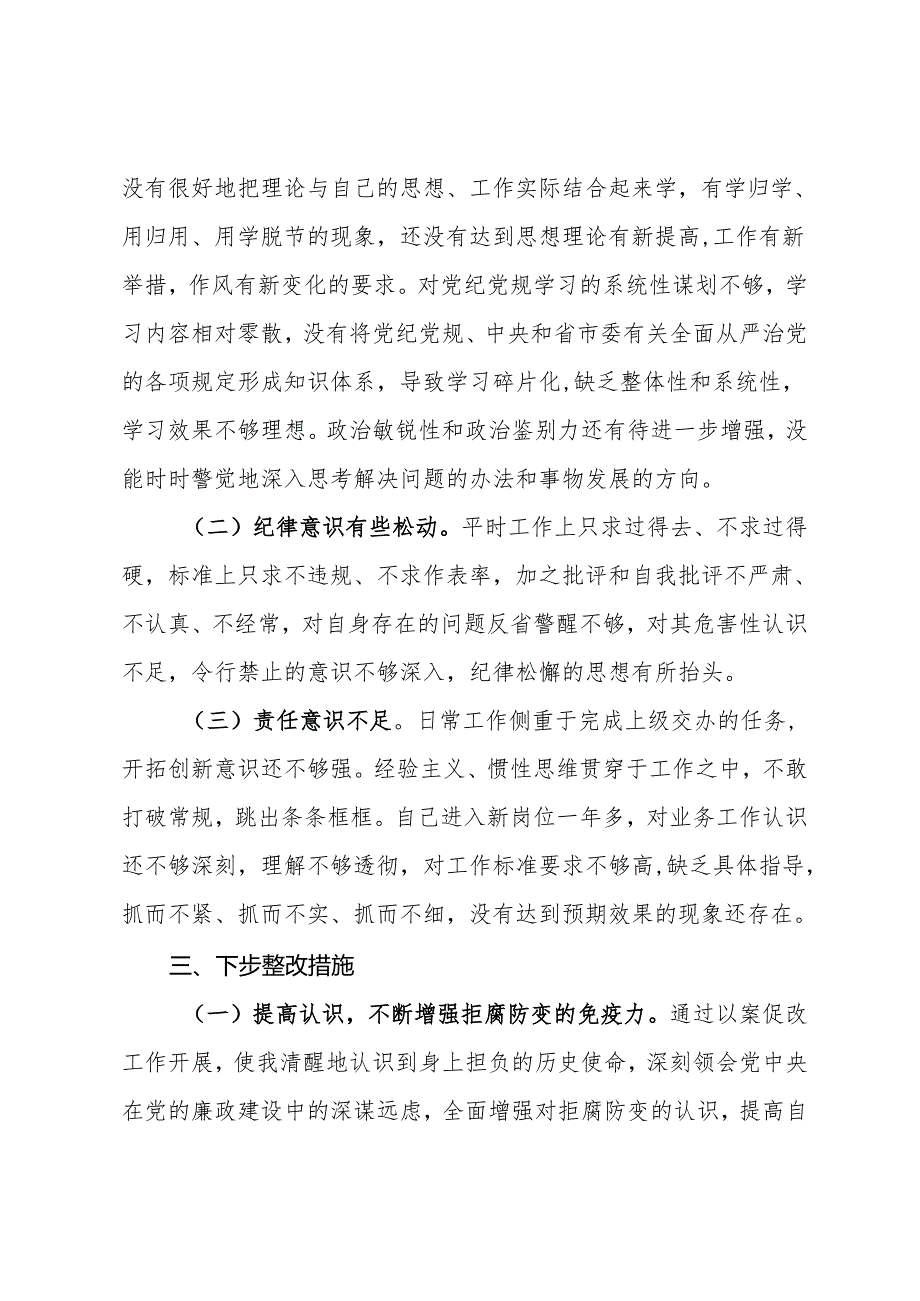 没有很好地把理论与自己的思想、工作实际结合起来学，有学归学、
用归用、用学脱节的现象，还没有达到思想理论有新提高,工作有新
举措，作风有新变化的要求。对党纪党规学习的系统性谋划不够，学
习内容相对零散，没有将党纪党规、中央和省市委有关全面从严治党
的各项规定形成知识体系，导致学习碎片化,缺乏整体性和系统性，
学习效果不够理想。政治敏锐性和政治鉴别力还有待进一步增强，没
能时时警觉地深入思考解决问题的办法和事物发展的方向。
（二）纪律意识有些松动。平时工作上只求过得去、不求过得
硬，标准上只求不违规、不求作表率，加之批评和自我批评不严肃、
不认真、不经常，对自身存在的问题反省警醒不够，对其危害性认识
不足，令行禁止的意识不够深入，纪律松懈的思想有所抬头。
（三）责任意识不足。日常工作侧重于完成上级交办的任务，
开拓创新意识还不够强。经验主义、惯性思维贯穿于工作之中，不敢
打破常规，跳出条条框框。自己进入新岗位一年多，对业务工作认识
还不够深刻，理解不够透彻，对工作标准要求不够高,缺乏具体指导，
抓而不紧、抓而不实、抓而不细，没有达到预期效果的现象还存在。
三、下步整改措施
（一）提高认识，不断增强拒腐防变的免疫力。通过以案促改
工作开展，使我清醒地认识到身上担负的历史使命，深刻领会党中央
在党的廉政建设中的深谋远虑，全面增强对拒腐防变的认识，提高自